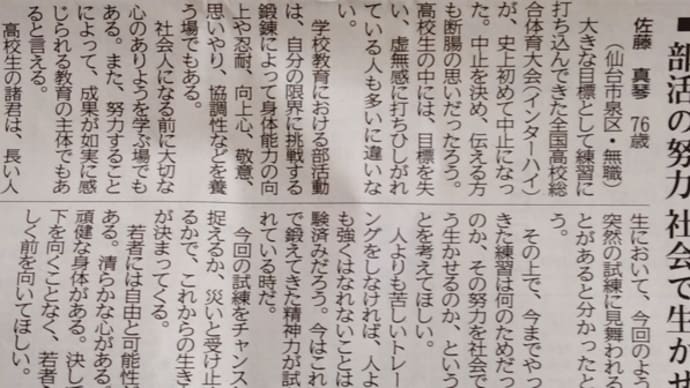 ■部活の努力 社会で生かせ
佐藤 真琴 76歳
(仙台市泉区・無職)
大きな目標として練習に
打ち込んできた全国高校総
合体育大会(インターハイ)
が、史上初めて中止になっ
た。中止を決め、伝える方
も断腸の思いだったろう。
高校生の中には、目標を失
い、虚無感に打ちひしがれ
ている人も多いに違いな
い。
学校教育における部活動
は、自分の限界に挑戦する
鍛錬によって身体能力の向
上や忍耐、向上心、敬意、
思いやり、協調性などを養
う場でもある。
社会人になる前に大切な
心のありようを学ぶ場でも
ある。また、努力すること
によって、成果が如実に感
じられる教育の主体でもあ
ると言える。
高校生の諸君は、長い人
生において、今回のよう
突然の試練に見舞われ
とがあると分かったと
う。
その上で、今までやっ
きた練習は何のためだっ
のか、その努力を社会で
う生かせるのか、という
とを考えてほしい。
人よりも苦しいトレー
ングをしなければ、人よ
も強くはなれないことは
験済みだろう。今はこれ
で鍛えてきた精神力が試
れている時だ。
今回の試練をチャンス
捉えるか、災いと受け止
るかで、これからの生き
が決まってくる。
若者には自由と可能性
ある。清らかな心がある
頑健な身体がある。決し
下を向くことなく、若者
しく前を向いてほしい。